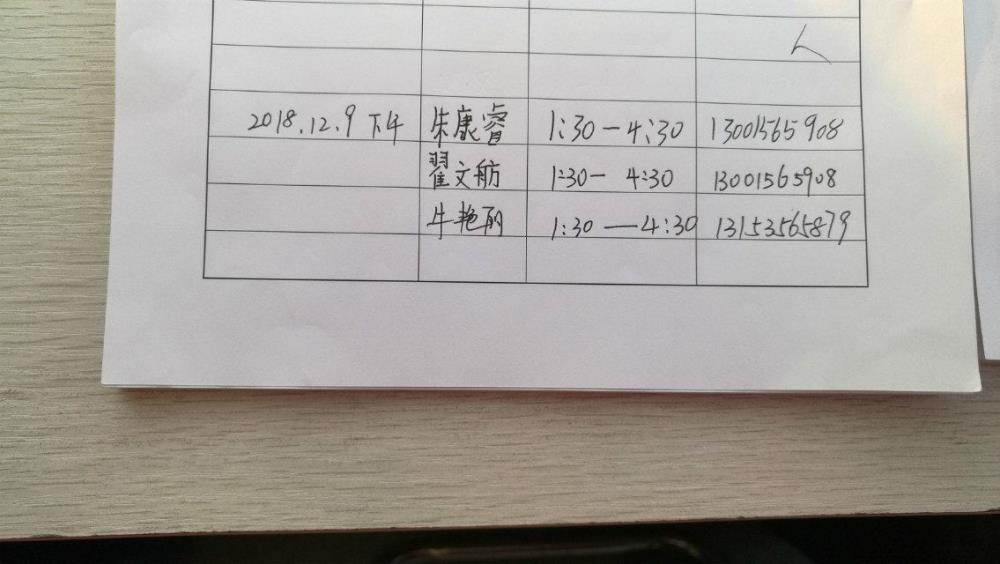 2018.12.9 下午 朱康睿 1:30-4:30 13001565908
翟文舫 1:30- 4:30 13001565908
牛艳丽 1:30 —4:30 13153565879